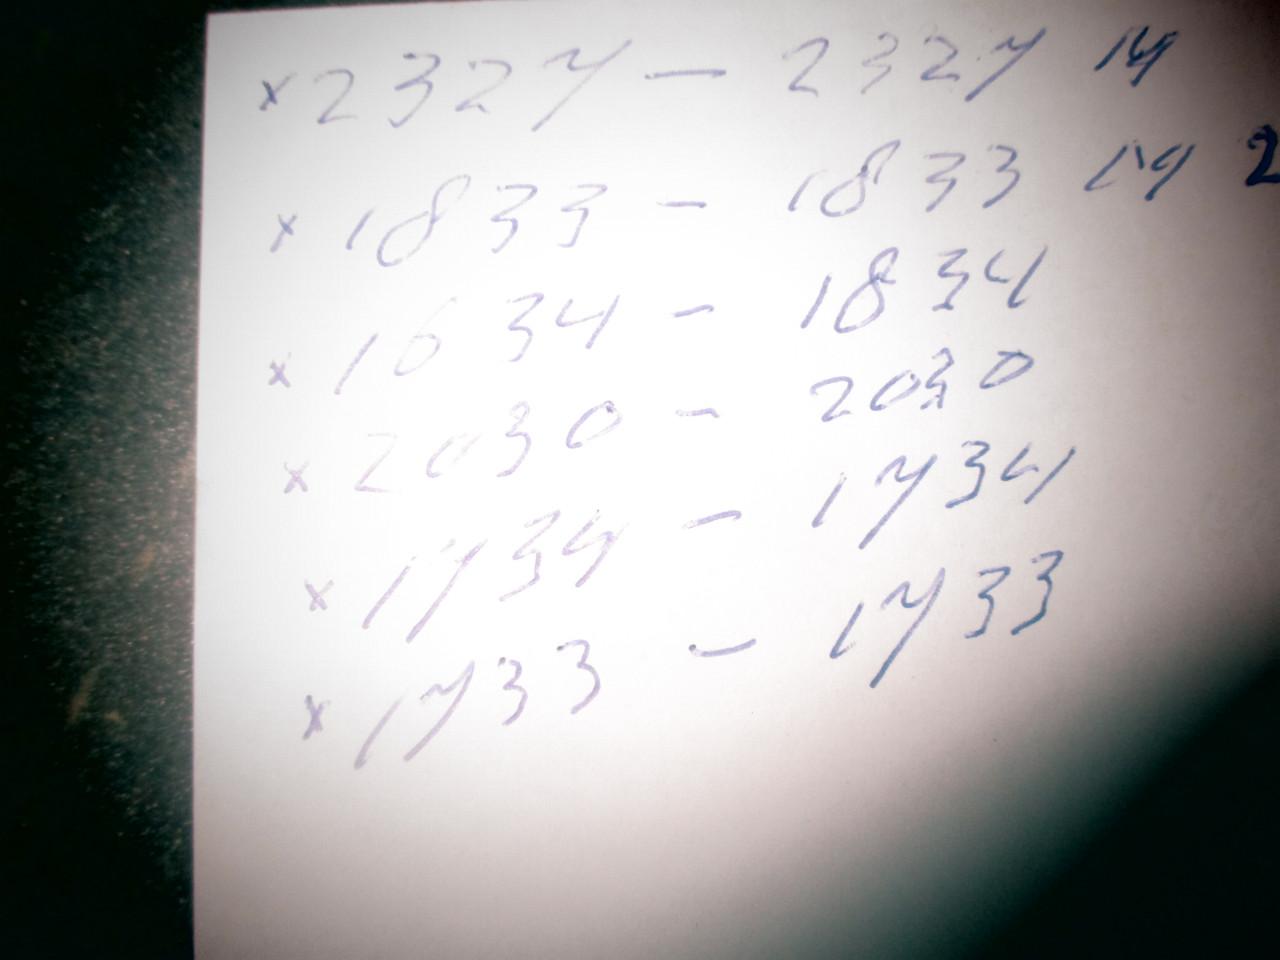 ×2327 — 2327 14
×1833 - 1833 14 2
×1634 - 1834
×2030 - 2030
×1734 - 1734
×1733 - 1733